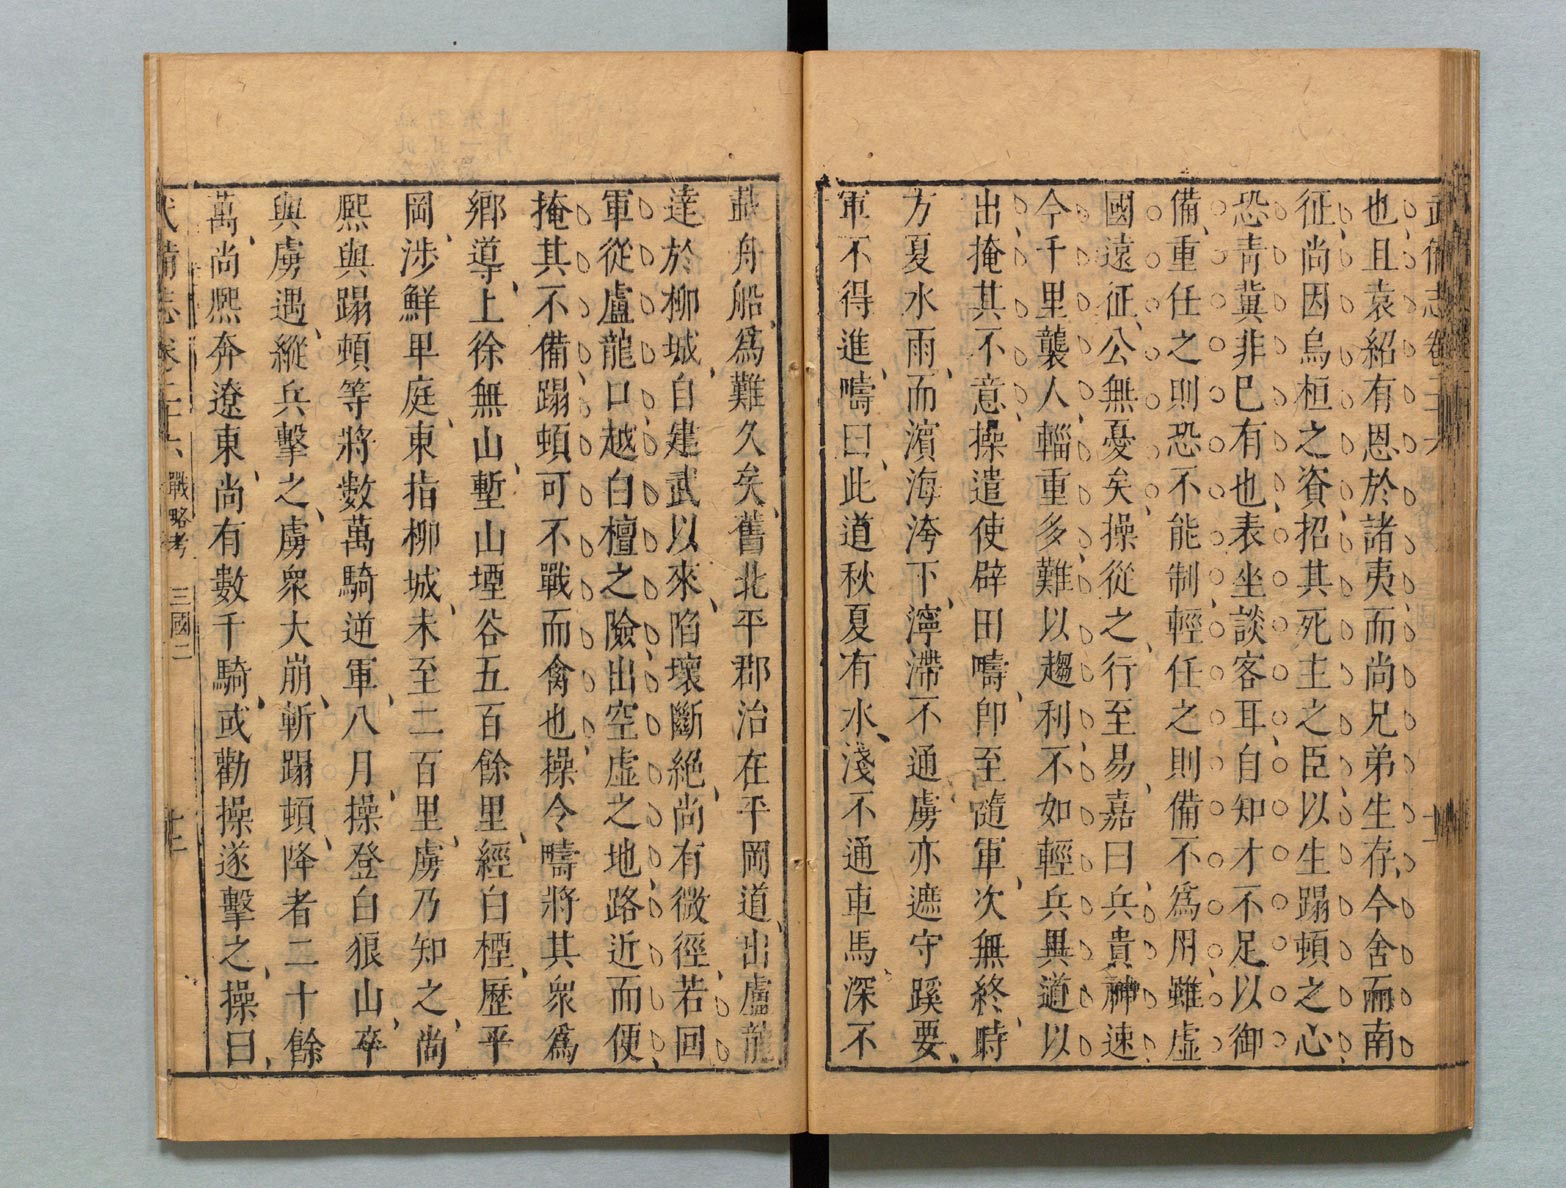 武備志卷二十六
也且袁紹有恩於諸夷而尚兄弟生存今舍而南
征尚因烏桓之資招其死主之臣以生蹋頓之心
恐青冀非巳有也表坐談客耳自知才不足以御
備重任之則恐不能制輕任之則備不爲用雖虛
國遠征公無憂矣操從之行至易嘉曰兵貴神速
今千里襲人輜重多難以趨利不如輕兵異道以
出掩其不意操遣使辟田疇卽至隨軍次無終時
方夏水雨而濱海洿下濘滯不通虜亦遮守蹊要
軍不得進疇曰此道秋夏有水淺不通車馬深不
載舟船爲難久矣舊北平郡治在平岡道出盧龍
達於柳城自建武以來陷壞斷絕尚有微徑若回
軍從盧龍口越白檀之險出空虛之地路近而便
掩其不備蹋頓可不戰而禽也操令疇將其衆爲
鄉導上徐無山塹山堙谷五百餘里經白檀歷平
岡涉鮮卑庭東指柳城未至二百里虜乃知之尚
熙與蹋頓等將數萬騎逆軍八月操登白狼山卒
與虜遇縱兵擊之虜衆大崩斬蹋頓降者二十餘
萬尚熙奔遼東尚有數千騎或勸操遂擊之操曰
武備志卷二十六 戰略考 三國二